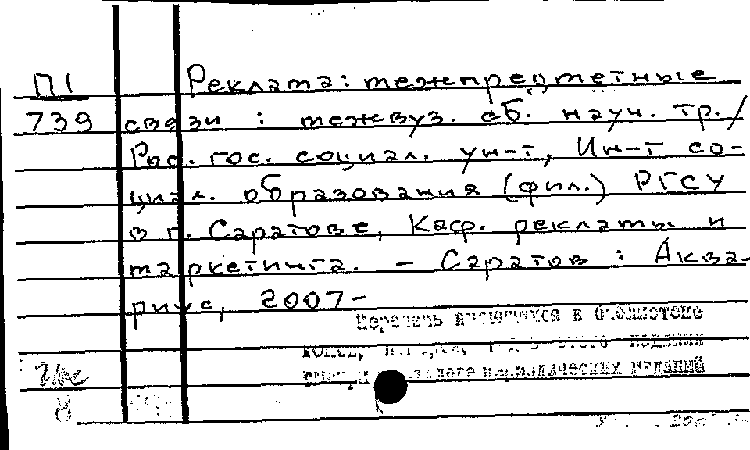 П1 Реклама: межпредметные
739 связи : межвуз. сб. науч. тр./
Рос. гос. социал. ун-т, Ин-т со-
циал. образования (фил.) РГСУ
в г. Саратове, Каф. рекламы и
маркетинга. - Саратов : Аква-
риус, 2007-
Перечень имеющихся в библиотеке
издания
периодических изданий